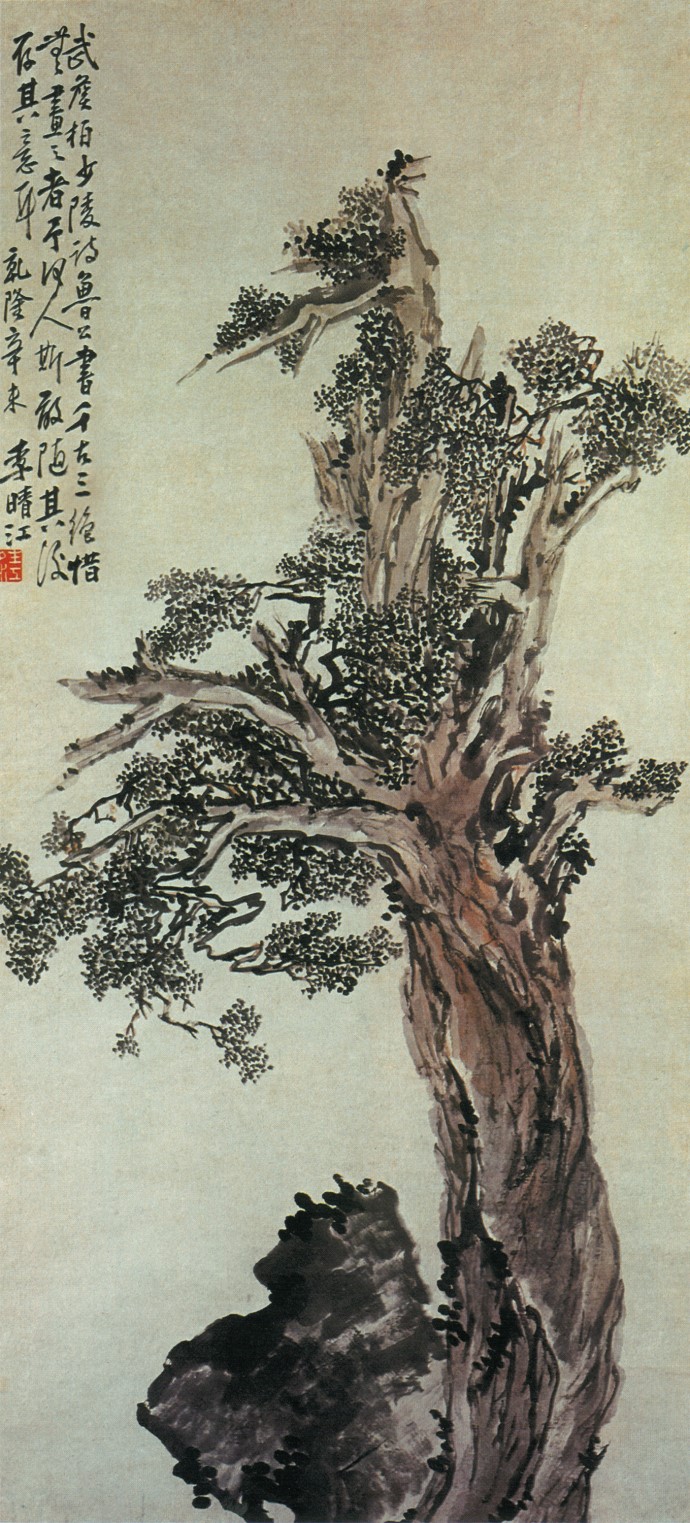 武侯柏少陵詩魯公書千古三絶惜
無畫之者予何人斯敢隨其後
存其意耳 乾隆辛未 李晴江